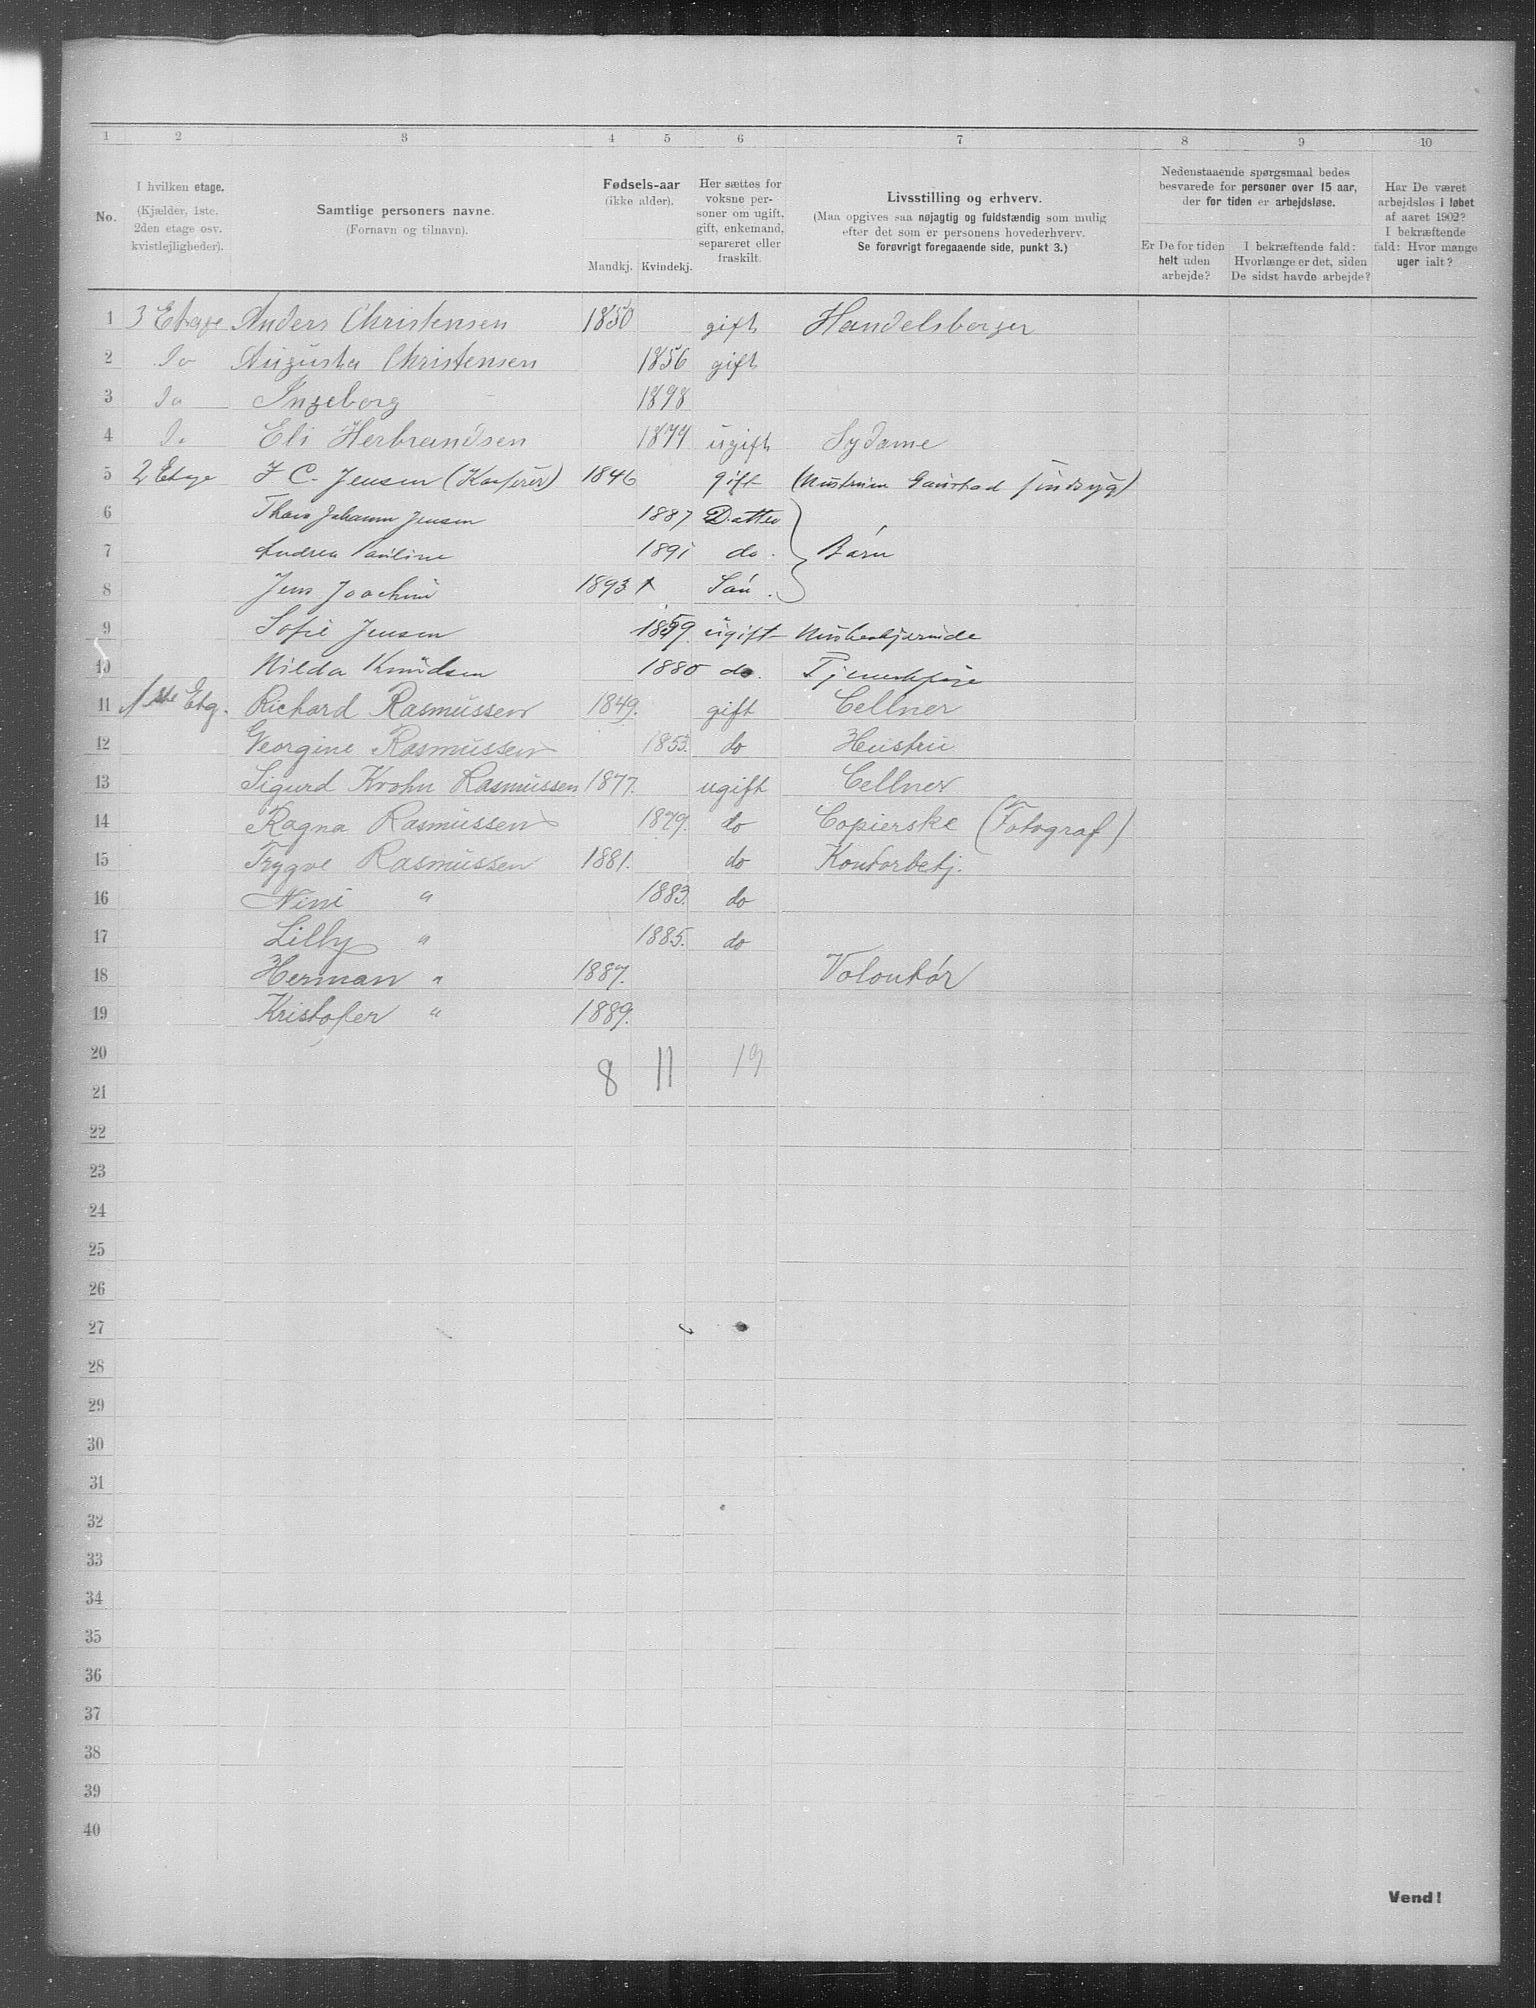 1 2 3 4 5 6 7 8 9 10
No.
I hvilken etage.
(Kjælder, 1ste.
2den etage osv.
kvistlejligheder).
Samtlige personers navne.
(Fornavn og tilnavn).
Fødsels-aar
(ikke alder).
Mandkj. Kvindekj.
Her sættes for
voksne per-
soner om ugift,
gift, enkemand,
separeret eller
fraskilt.
Livsstilling og erhverv.
(Maa opgives saa nøjagtig og fuldstændig som mulig
efter det som er personens hovederhverv.
Se forøvrigt foregaaende side, punkt 3.)
Nedenstaaende spørgsmaal bedes
besvarede for personer over 15 aar,
der for tiden er arbejdsløse.
Er De for tiden
helt uden
arbejde?
I bekræftende fald:
Hvorlænge er det, siden
De sidst havde arbejde?
Har De været
arbejdsløs i løbet
af aaret 1902?
I bekræftende
fald: Hvor mange
uger ialt?
1 3 Etage Anders Christensen 1850 gift Handelsborger
2 Do Augusta Christensen 1856 gift
3 Do Ingeborg 1898
4 Do Eli Herbrandsen 1874 ugift Sydame
5 2 Etage J C. Jensen 1846 gift (Hustruen Gaustad sindsyg)
6 Johanne Jensen 1887 Datter
7 Andrea Pauline 1891 do. Børn
8 Jens Joachim 1893 Søn.
9 Sofie Jensen 1859 ugift Husbestyrerinde
10 Hilda Knudsen 1880 do. Tjenestepige
11 1ste Etg. Richard Rasmussen 1849. gift Cellner
12 Georgine Rasmussen 1853. do Hustru
13 Sigurd Krohn Rasmussen 1877. ugift Cellner
14 Ragna Rasmussen 1879. do Copierske (Fotograf)
15 Trygve Rasmussen 1881. do Kontorbetj.
16 Nini " 1883. do
17 Lilly " 1885. do
18 Herman " 1887. Volontør
19 Kristofer " 1889.
20
8 11 19
21
22
23
24
25
26
27
28
29
30
31
32
33
34
35
36
37
38
39
40
Vend!